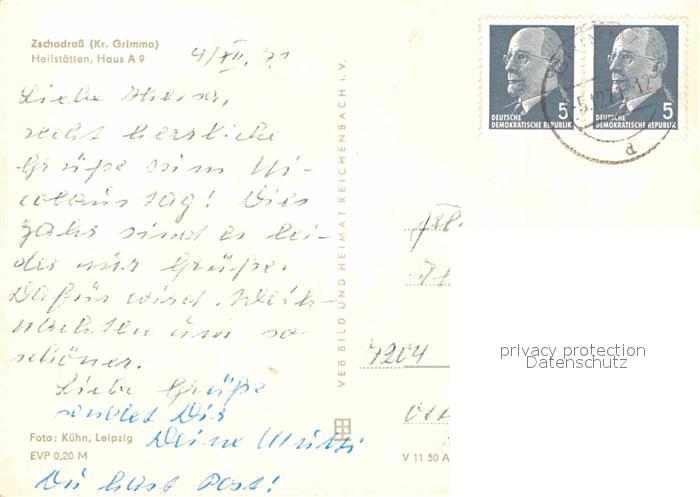 Zschadraß (Kr. Grimma)
Heilstätten, Haus A 9
4/XII. 71
Liebe
recht herzliche
Grüße zum Ni-
colaustag! Dies
Jahr sind es lei-
der nur Grüße.
Dafür wird Weih-
nachten um so
schöner.
Liebe Grüße
sendet Dir
Deine Mutti
Du hast Post!
Foto: Kühn, Leipzig
EVP 0,20 M
VEB BILD UND HEIMAT REICHENBACH i. V.
V 11 50 A
5
DEUTSCHE
DEMOKRATISCHE REPUBLIK
5
DEUTSCHE
DEMOKRATISCHE REPUBLIK
d
7204
privacy protection
Datenschutz